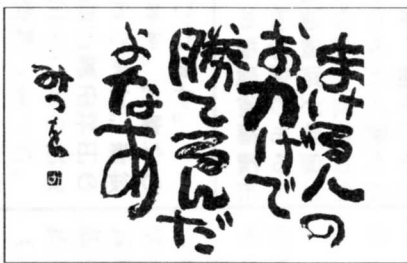 まける人の
おかげで
勝てるんだ
よなあ
みつを